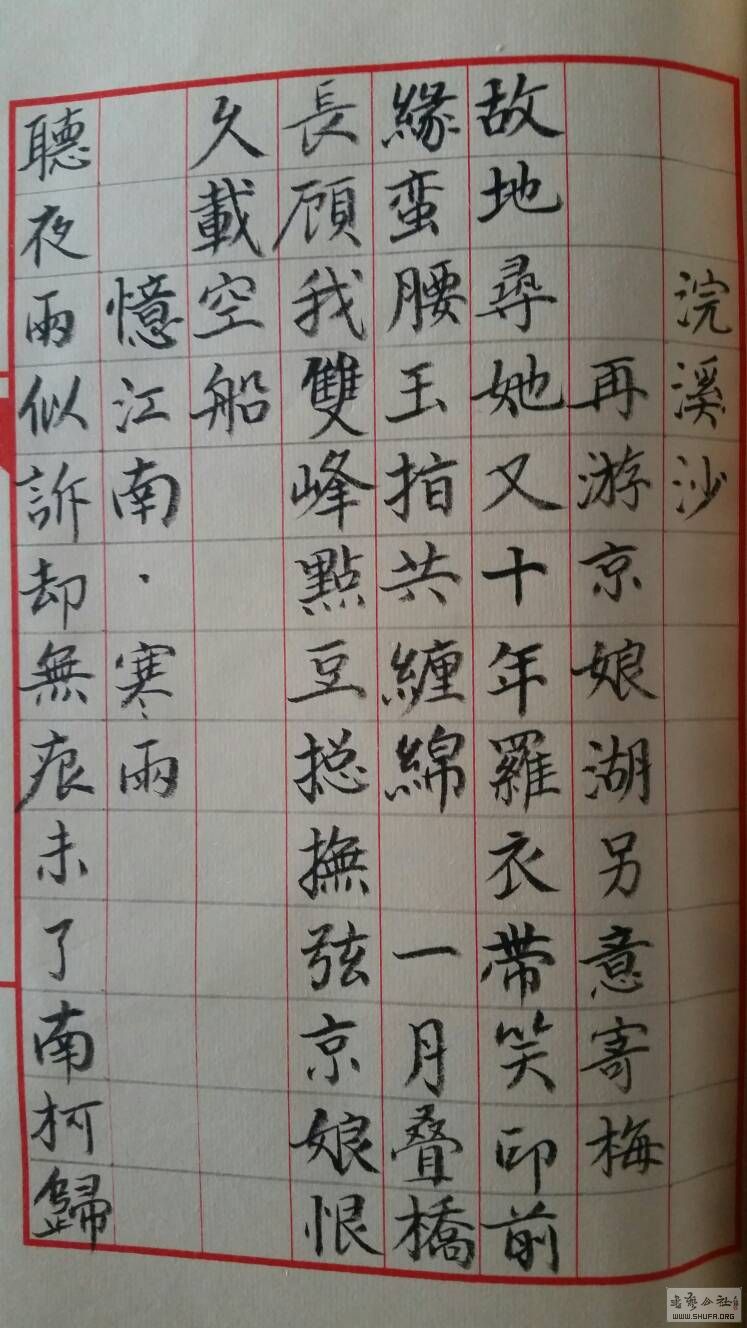 浣溪沙
再游京娘湖另意寄梅
故地尋她又十年羅衣帶笑印前
緣蛮腰玉指共纏綿 一月叠橋
長顾我雙峰點豆搃撫弦京娘恨
久載空船
憶江南·寒雨
聽夜雨似訴却無痕未了南柯歸
WWW.SHUFA.ORG